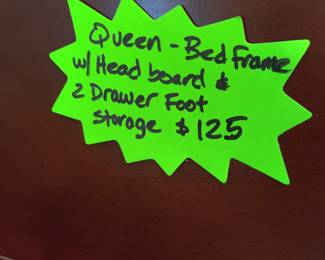 Queen - Bed Frame
w/ Head board &
2 Drawer Foot
Storage $125